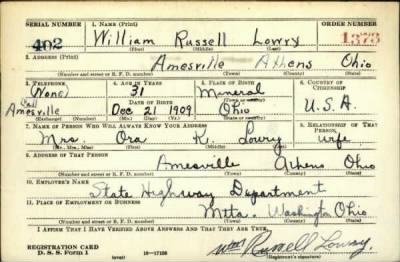 SERIAL NUMBER 1. NAME (Print) ORDER NUMBER
402 William Russell Lowry 1373
(First) (Middle) (Last)
2. ADDRESS (Print)
Amesville Athens Ohio
(Number and street or R. F. D. number) (Town) (County) (State)
3. TELEPHONE 4. AGE IN YEARS 5. PLACE OF BIRTH 6. COUNTRY OF CITIZENSHIP
(None) 31 Mineral
Call Amesville DATE OF BIRTH (Town or county)
Dec 21 1909 Ohio U.S.A.
(Exchange) (Number) (Mo.) (Day) (Yr.) (State or country)
7. NAME OF PERSON WHO WILL ALWAYS KNOW YOUR ADDRESS 8. RELATIONSHIP OF THAT PERSON
Mrs Ora K. Lowry wife
(Mr., Mrs., Miss) (First) (Middle) (Last)
9. ADDRESS OF THAT PERSON
Amesville Athens Ohio
(Number and street or R. F. D. number) (Town) (County) (State)
10. EMPLOYER'S NAME
State Highway Department
11. PLACE OF EMPLOYMENT OR BUSINESS
Mtta. Washington Ohio
(Number and street or R. F. D. number) (Town) (County) (State)
I AFFIRM THAT I HAVE VERIFIED ABOVE ANSWERS AND THAT THEY ARE TRUE.
Wm Russell Lowry
REGISTRATION CARD
D. S. S. Form 1 (over) 16—17105 (Registrant's signature)